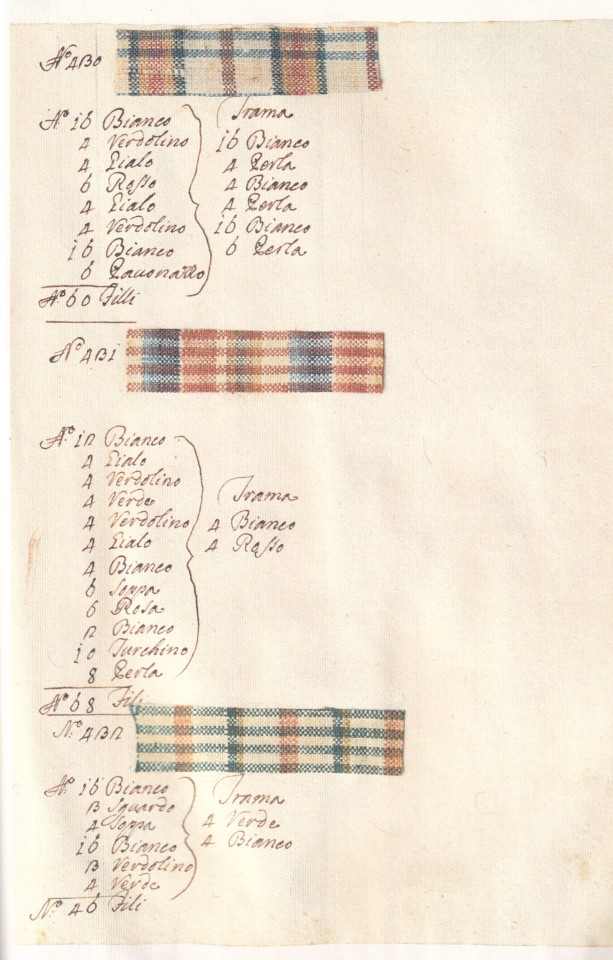 N.º 430
N.º 16 Bianco
4 Verdolino
4 Gialo
6 Rosso
4 Gialo
4 Verdolino
16 Bianco
6 Pavonazzo
N.º 60 Filli
Trama
16 Bianco
4 Perla
4 Bianco
4 Perla
16 Bianco
6 Perla
N.º 431
N.º 12 Bianco
4 Gialo
4 Verdolino
4 Verde
4 Verdolino
4 Gialo
4 Bianco
6 Soppa
6 Rosa
2 Bianco
10 Turchino
8 Perla
N.º 68 Fili
Trama
4 Bianco
4 Rosso
N.º 432
N.º 16 Bianco
3 Sguardo
4 Soppa
16 Bianco
3 Verdolino
4 Verde
N.º 46 Fili
Trama
4 Verde
4 Bianco